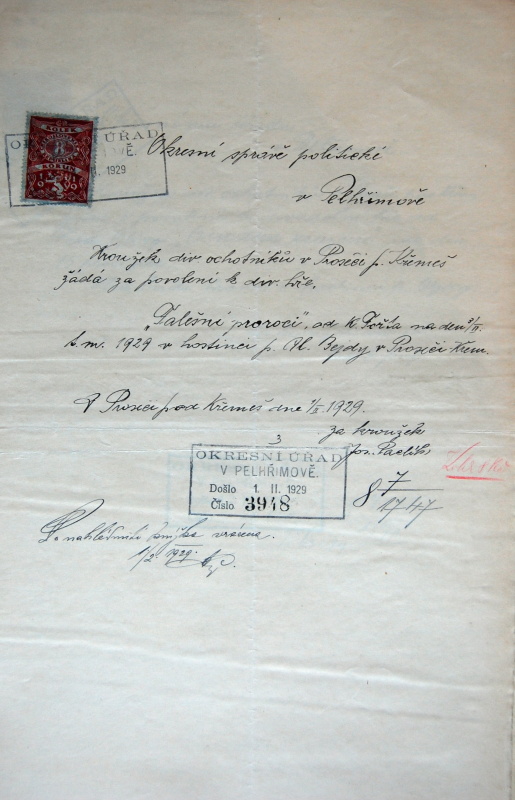 KOLEK
OKRESNÍ ÚŘAD
8
KORUN
II. 1929
Okresní správě politické
v Pelhřimově
Kroužek div. ochotníků v Proseči p. Křemeš
žádá za povolení k div. hře.
„Falešní proroci", od K. Fořta na den 3/II.
t. m. 1929 v hostinci p. Vl. Bejdy v Proseči Křem.
V Proseči pod Křemeš dne 1/II 1929.
za kroužek
3
Jos. Pavlík
OKRESNÍ ÚŘAD
V PELHŘIMOVĚ.
Došlo 1. II. 1929
Číslo 3948
8 7
1747
Po nahlédnutí knížka vrácena.
1/2 1929.